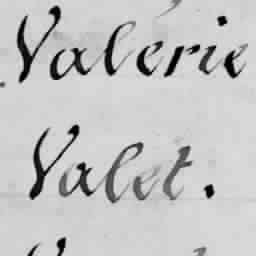 Valérie
Valet.